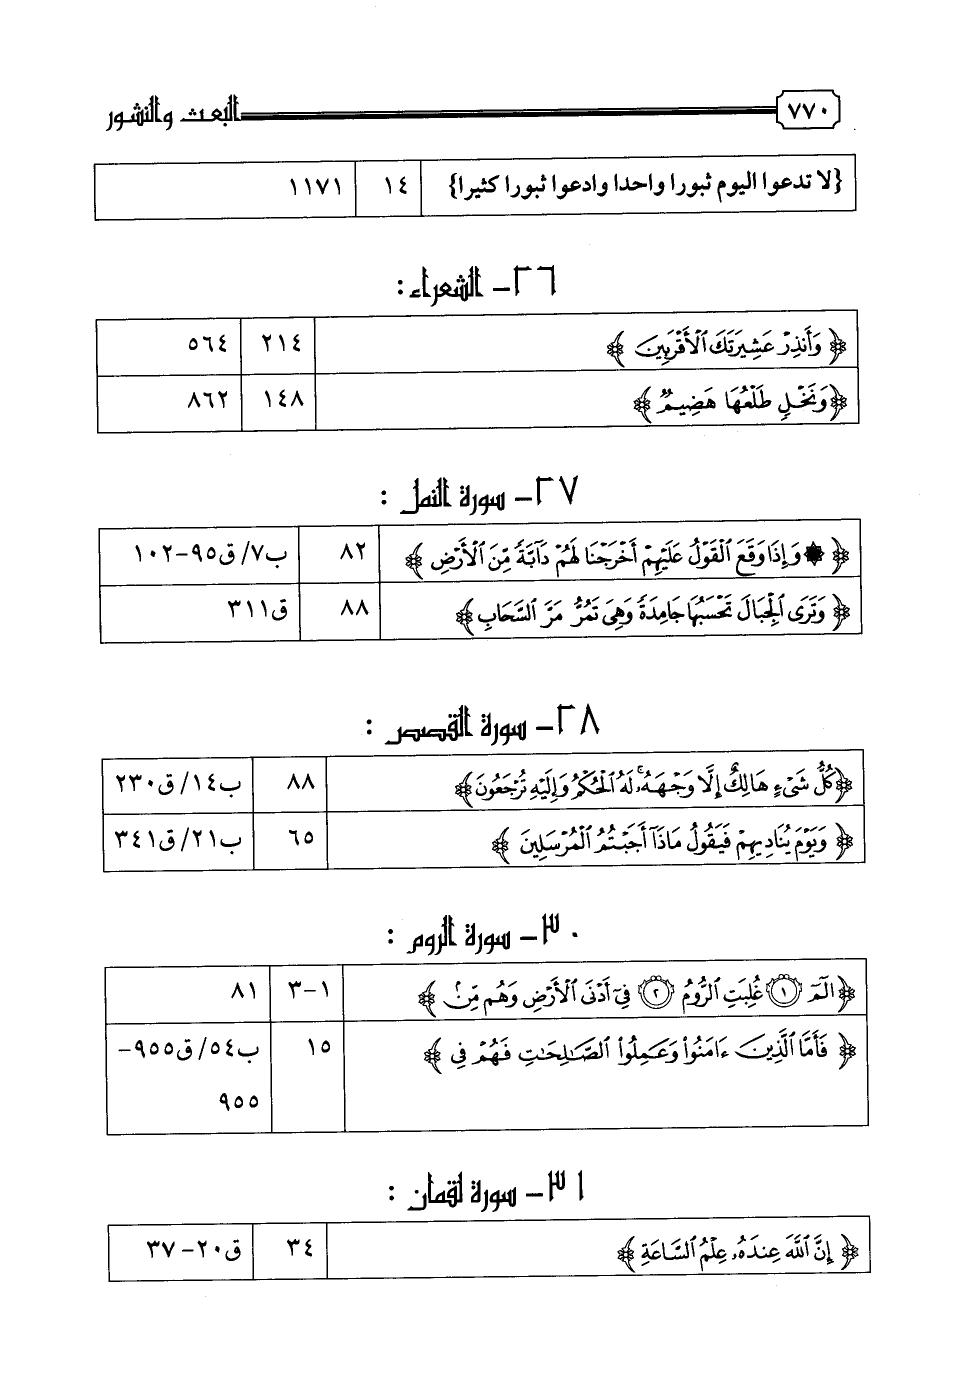 ٧٧٠ البعث والنشور
{لا تدعوا اليوم ثبورا واحدا وادعوا ثبورا كثيرا} ١٤ ١١٧١
٢٦- الشعراء :
﴿ وَأَنذِرْ عَشِيرَتَكَ ٱلْأَقْرَبِينَ ﴾ ٢١٤ ٥٦٤
﴿وَنَخْلٍ طَلْعُهَا هَضِيمٌ ﴾ ١٤٨ ٨٦٢
٢٧- سورة النمل :
﴿ ۞ وَإِذَا وَقَعَ ٱلْقَوْلُ عَلَيْهِمْ أَخْرَجْنَا لَهُمْ دَآبَّةً مِّنَ ٱلْأَرْضِ ﴾ ٨٢ ب٧/ ق٩٥-١٠٢
﴿ وَتَرَى ٱلْجِبَالَ تَحْسَبُهَا جَامِدَةً وَهِىَ تَمُرُّ مَرَّ ٱلسَّحَابِ ﴾ ٨٨ ق٣١١
٢٨- سورة القصص :
﴿كُلُّ شَىْءٍ هَالِكٌ إِلَّا وَجْهَهُۥ ۚ لَهُ ٱلْحُكْمُ وَإِلَيْهِ تُرْجَعُونَ﴾ ٨٨ ب١٤/ ق٢٣٠
﴿ وَيَوْمَ يُنَادِيهِمْ فَيَقُولُ مَاذَآ أَجَبْتُمُ ٱلْمُرْسَلِينَ ﴾ ٦٥ ب٢١/ ق٣٤١
٣٠- سورة الروم :
﴿ الٓمٓ ١ غُلِبَتِ ٱلرُّومُ ٢ فِىٓ أَدْنَى ٱلْأَرْضِ وَهُم مِّنۢ ﴾ ١-٣ ٨١
﴿ فَأَمَّا ٱلَّذِينَ ءَامَنُوا۟ وَعَمِلُوا۟ ٱلصَّـٰلِحَـٰتِ فَهُمْ فِى ﴾ ١٥ ب٥٤/ ق٩٥٥-
٩٥٥
٣١- سورة لقمان :
﴿ إِنَّ ٱللَّهَ عِندَهُۥ عِلْمُ ٱلسَّاعَةِ ﴾ ٣٤ ق٢٠-٣٧